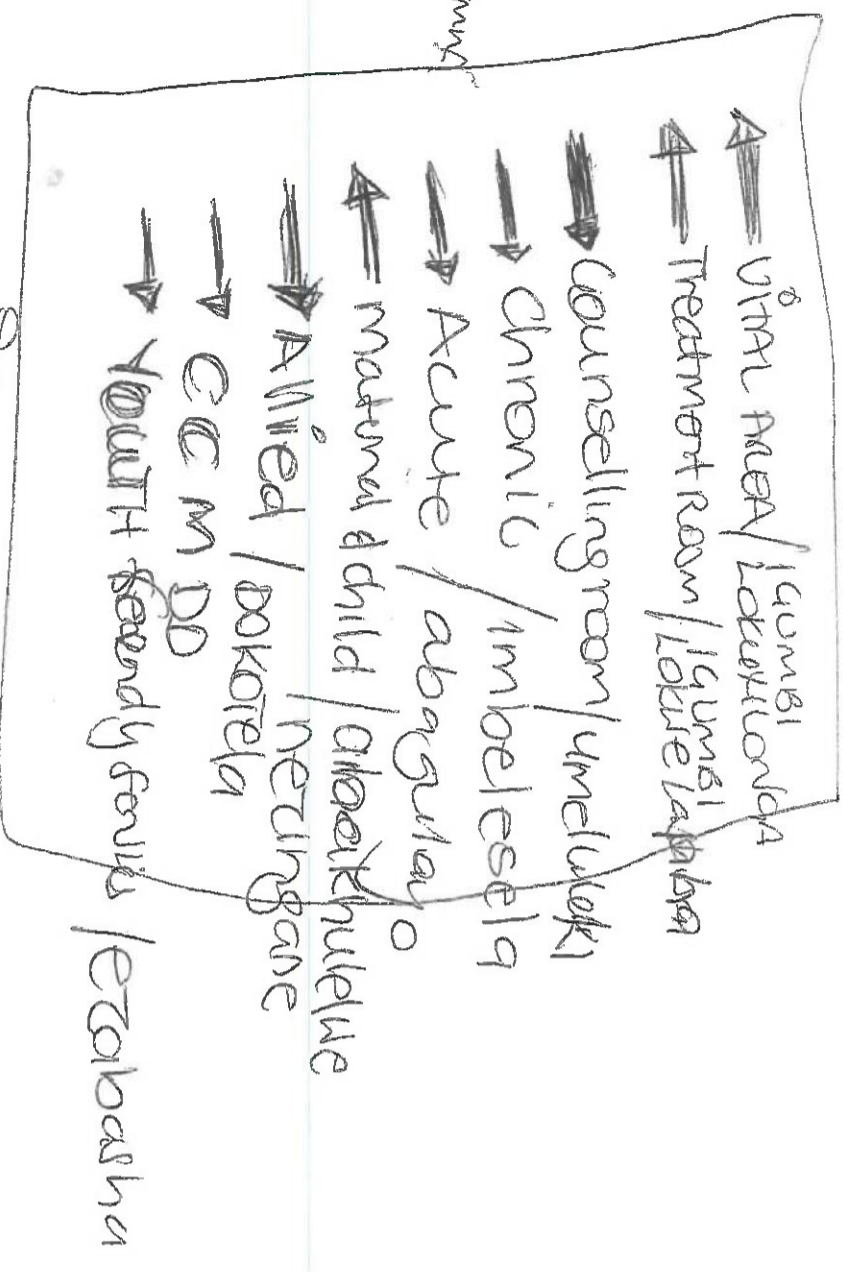 ← VITAL AREA / IGUMBI LOKUXILONGA
← Treatment Room / IGUMBI LOKWELAPHA
→ Counselling room / umeluleki
→ Chronic / imbelesela
→ Acute / abagulayo
← Maturnal & child / abakhulelwe nezingane
→ Allied / DOKOTELA
→ CCMDD
→ YOUTH friendly / ezabasha